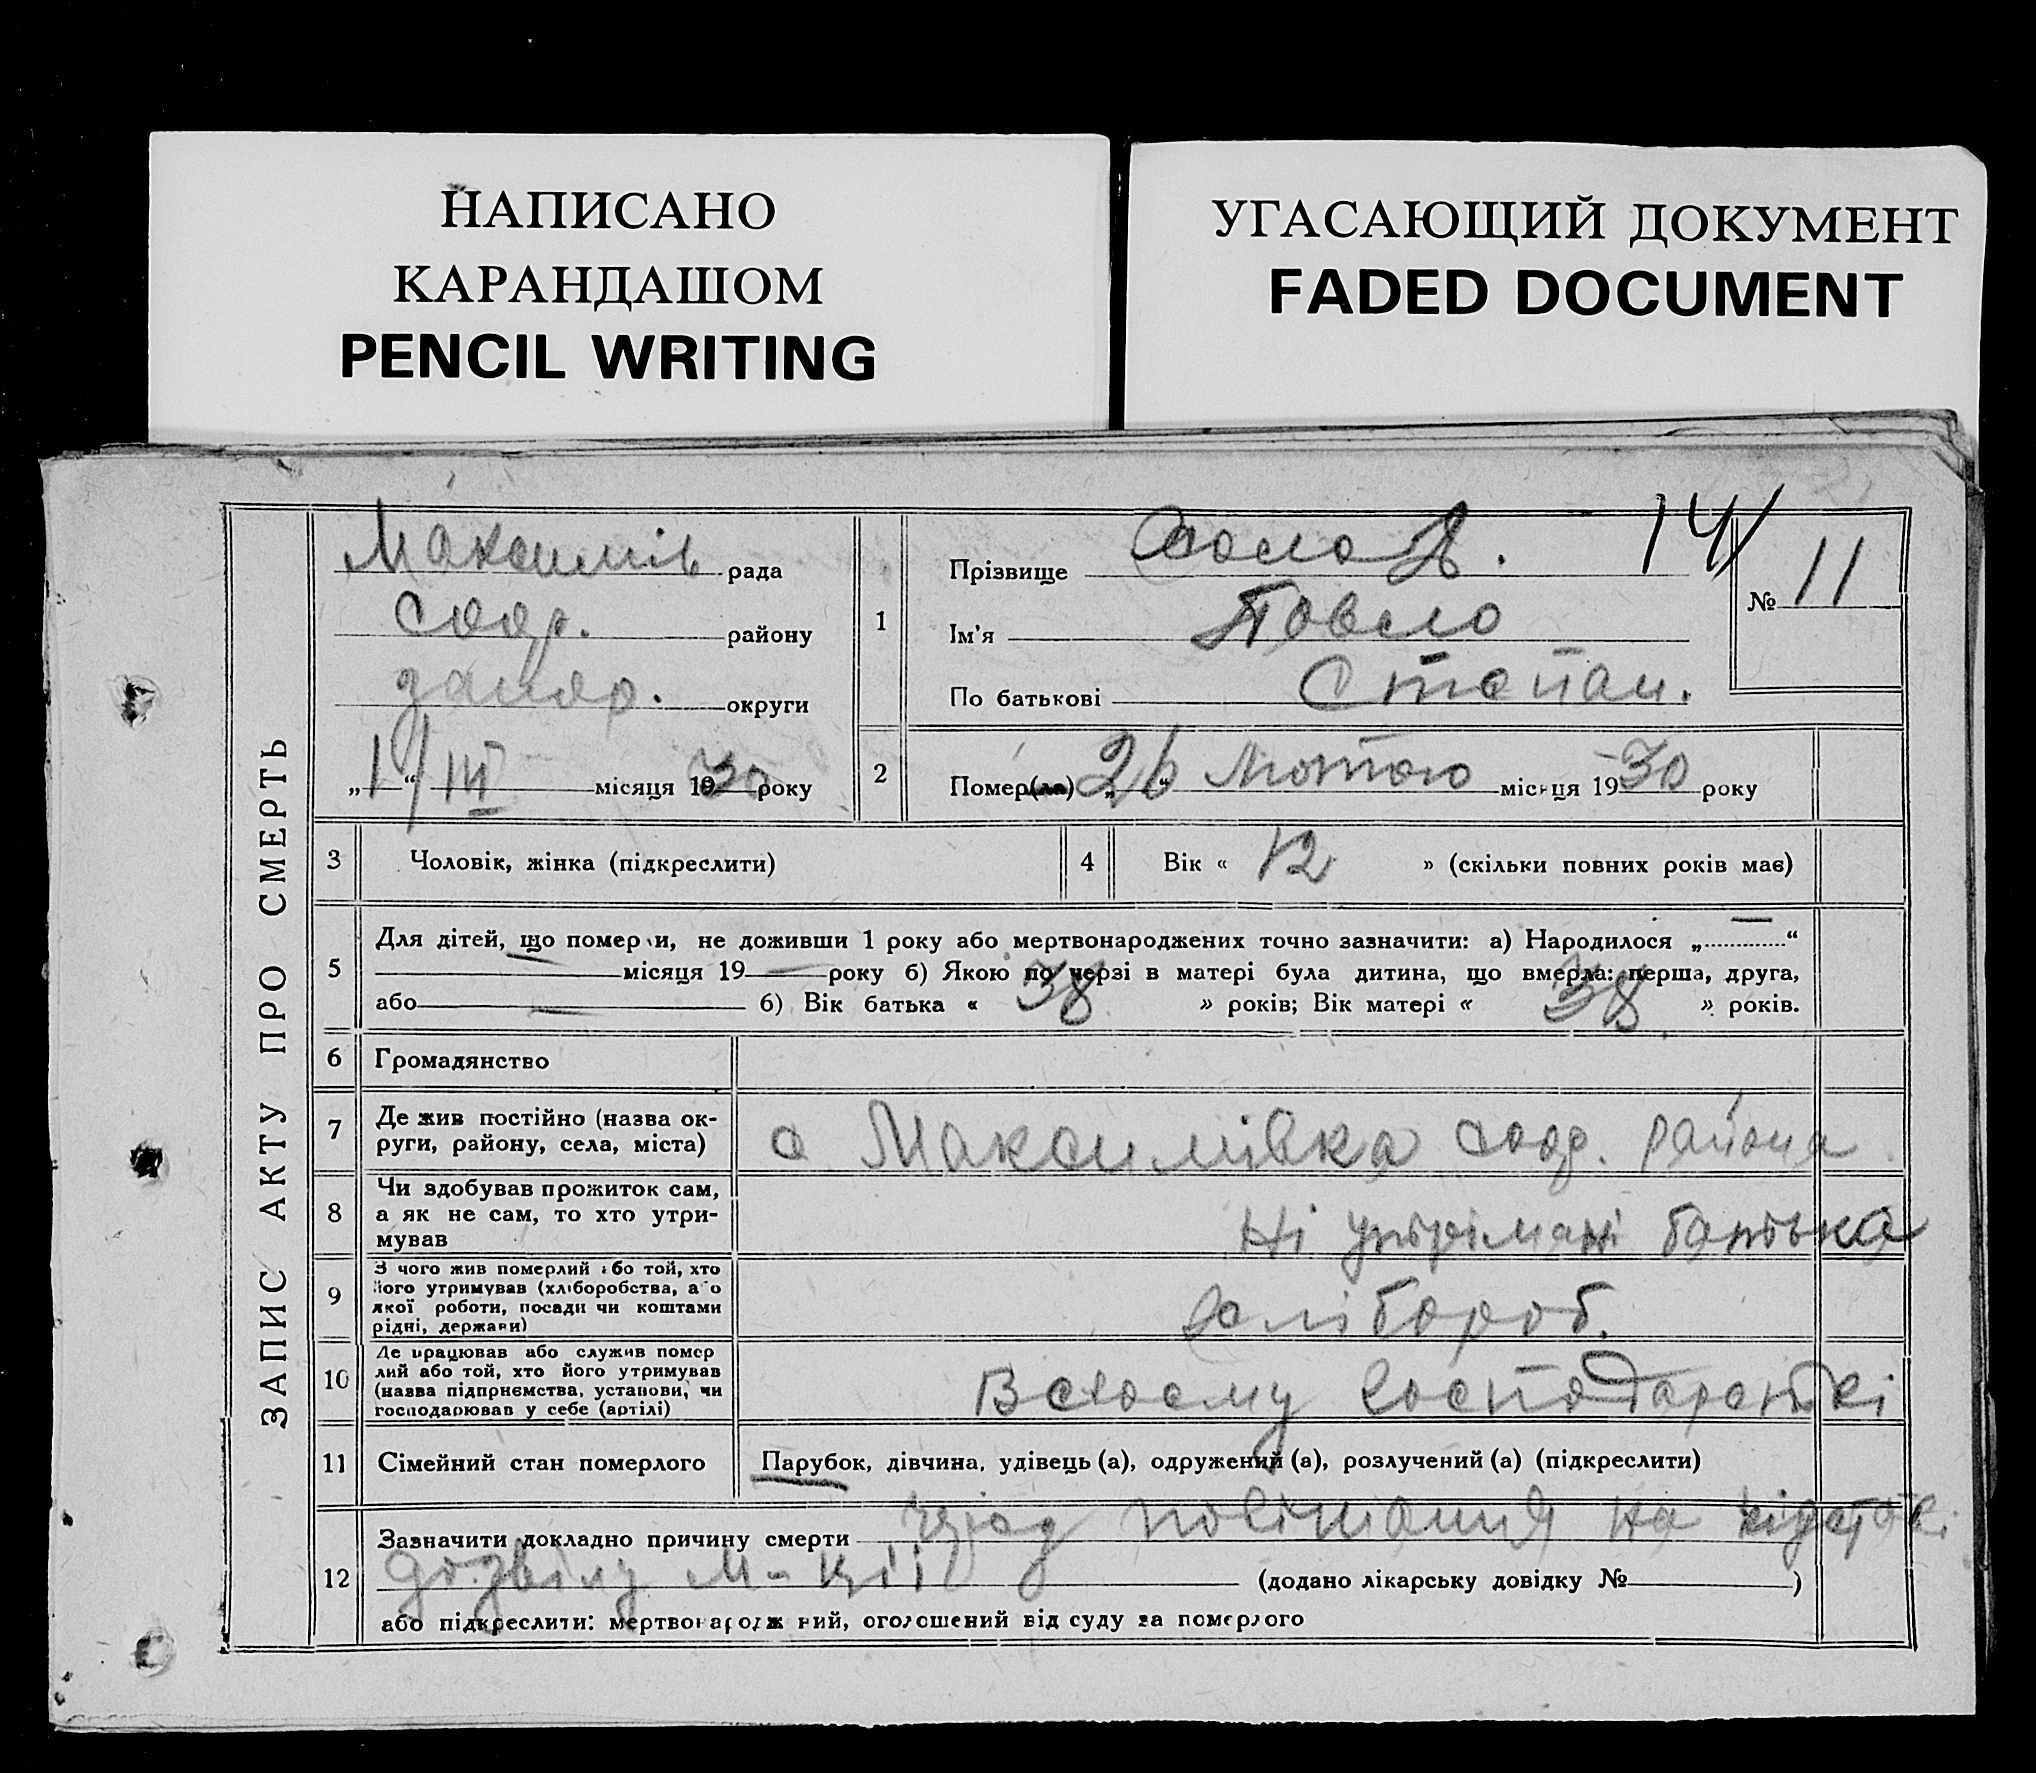 НАПИСАНО
КАРАНДАШОМ
PENCIL WRITING
УГАСАЮЩИЙ ДОКУМЕНТ
FADED DOCUMENT
ЗАПИС АКТУ ПРО СМЕРТЬ
Максимів рада
района
запор. округи
„1“ III місяця 1930 року
1
Прізвище 141
Ім'я Повело
По батькові Степан.
№ 11
2
Помер(ла) „26“ Лютого місяця 1930 року
3 Чоловік, жінка (підкреслити)
4 Вік « 12 » (скільки повних років має)
5
Для дітей, що померли, не доживши 1 року або мертвонароджених точно зазначити: а) Народилося „—“
— місяця 19— року б) Якою по черзі в матері була дитина, що вмерла: перша, друга,
або — б) Вік батька « 38 » років; Вік матері « 38 » років.
6 Громадянство
7
Де жив постійно (назва ок-
руги, району, села, міста)
с Максимівка района
8
Чи здобував прожиток сам,
а як не сам, то хто утри-
мував
Ні батька
9
З чого жив померлий або той, хто
його утримував (хліборобства, або
якої роботи, посади чи коштами
рідні, держави)
хлібороб.
10
Де працював або служив помер
лий або той, хто його утримував
(назва підприємства, установи, чи
господарював у себе (артілі)
Всвоему
11 Сімейний стан померлого
Парубок, дівчина, удівець (а), одружений (а), розлучений (а) (підкреслити)
12
Зазначити докладно причину смерти на підставі
дозвілу м-ції (додано лікарську довідку № )
або підкреслити: мертвонароджений, оголошений від суду за померлого